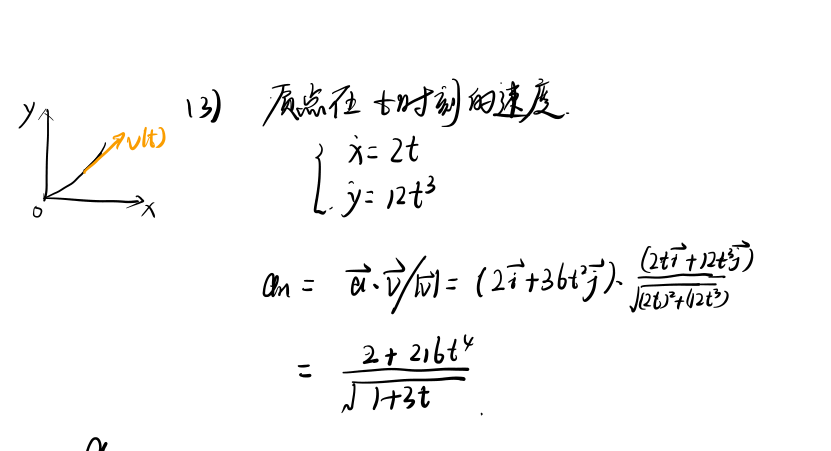 y
v(t)
0
x
(3) 质点在 t时刻的速度.
{ ẋ = 2t
ẏ = 12t³
an = a⃗·v⃗/|v⃗| = (2i⃗+36t²j⃗)·(2ti⃗+12t³j⃗)/√((2t)²+(12t³)
= (2+216t⁴)/√(1+3t)
a